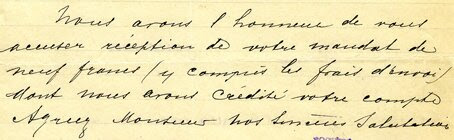 Nous avons l honneur de vous
accuser réception de votre mandat de
neuf francs (y compris les frais d'envoi)
dont nous avons crédité votre compte
Agreez Monsieur nos sincères Salutations